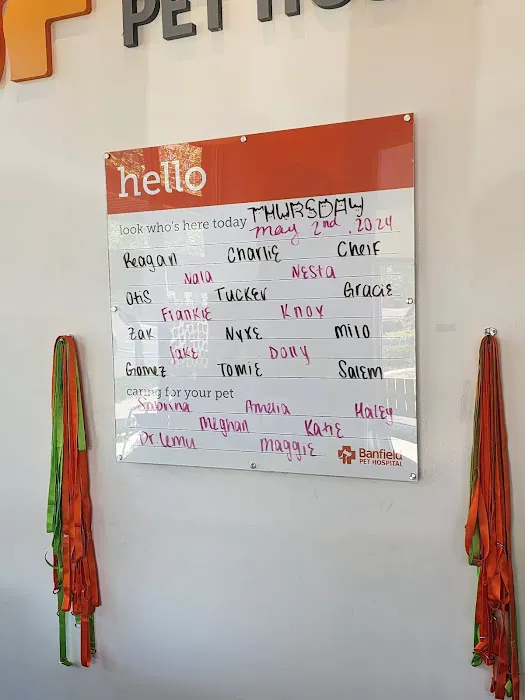 PET HOS
hello
look who's here today THURSDAY
may 2nd, 2024
Reagan Charlie Cheif
Nala Nesta
Otis Tucker Gracie
Frankie Knox
Zak Nyxe Milo
Jake Dolly
Gomez Tomie Salem
caring for your pet
Sabrina Amelia Haley
Meghan Katie
Dr. Lemus Maggie
Banfield
PET HOSPITAL